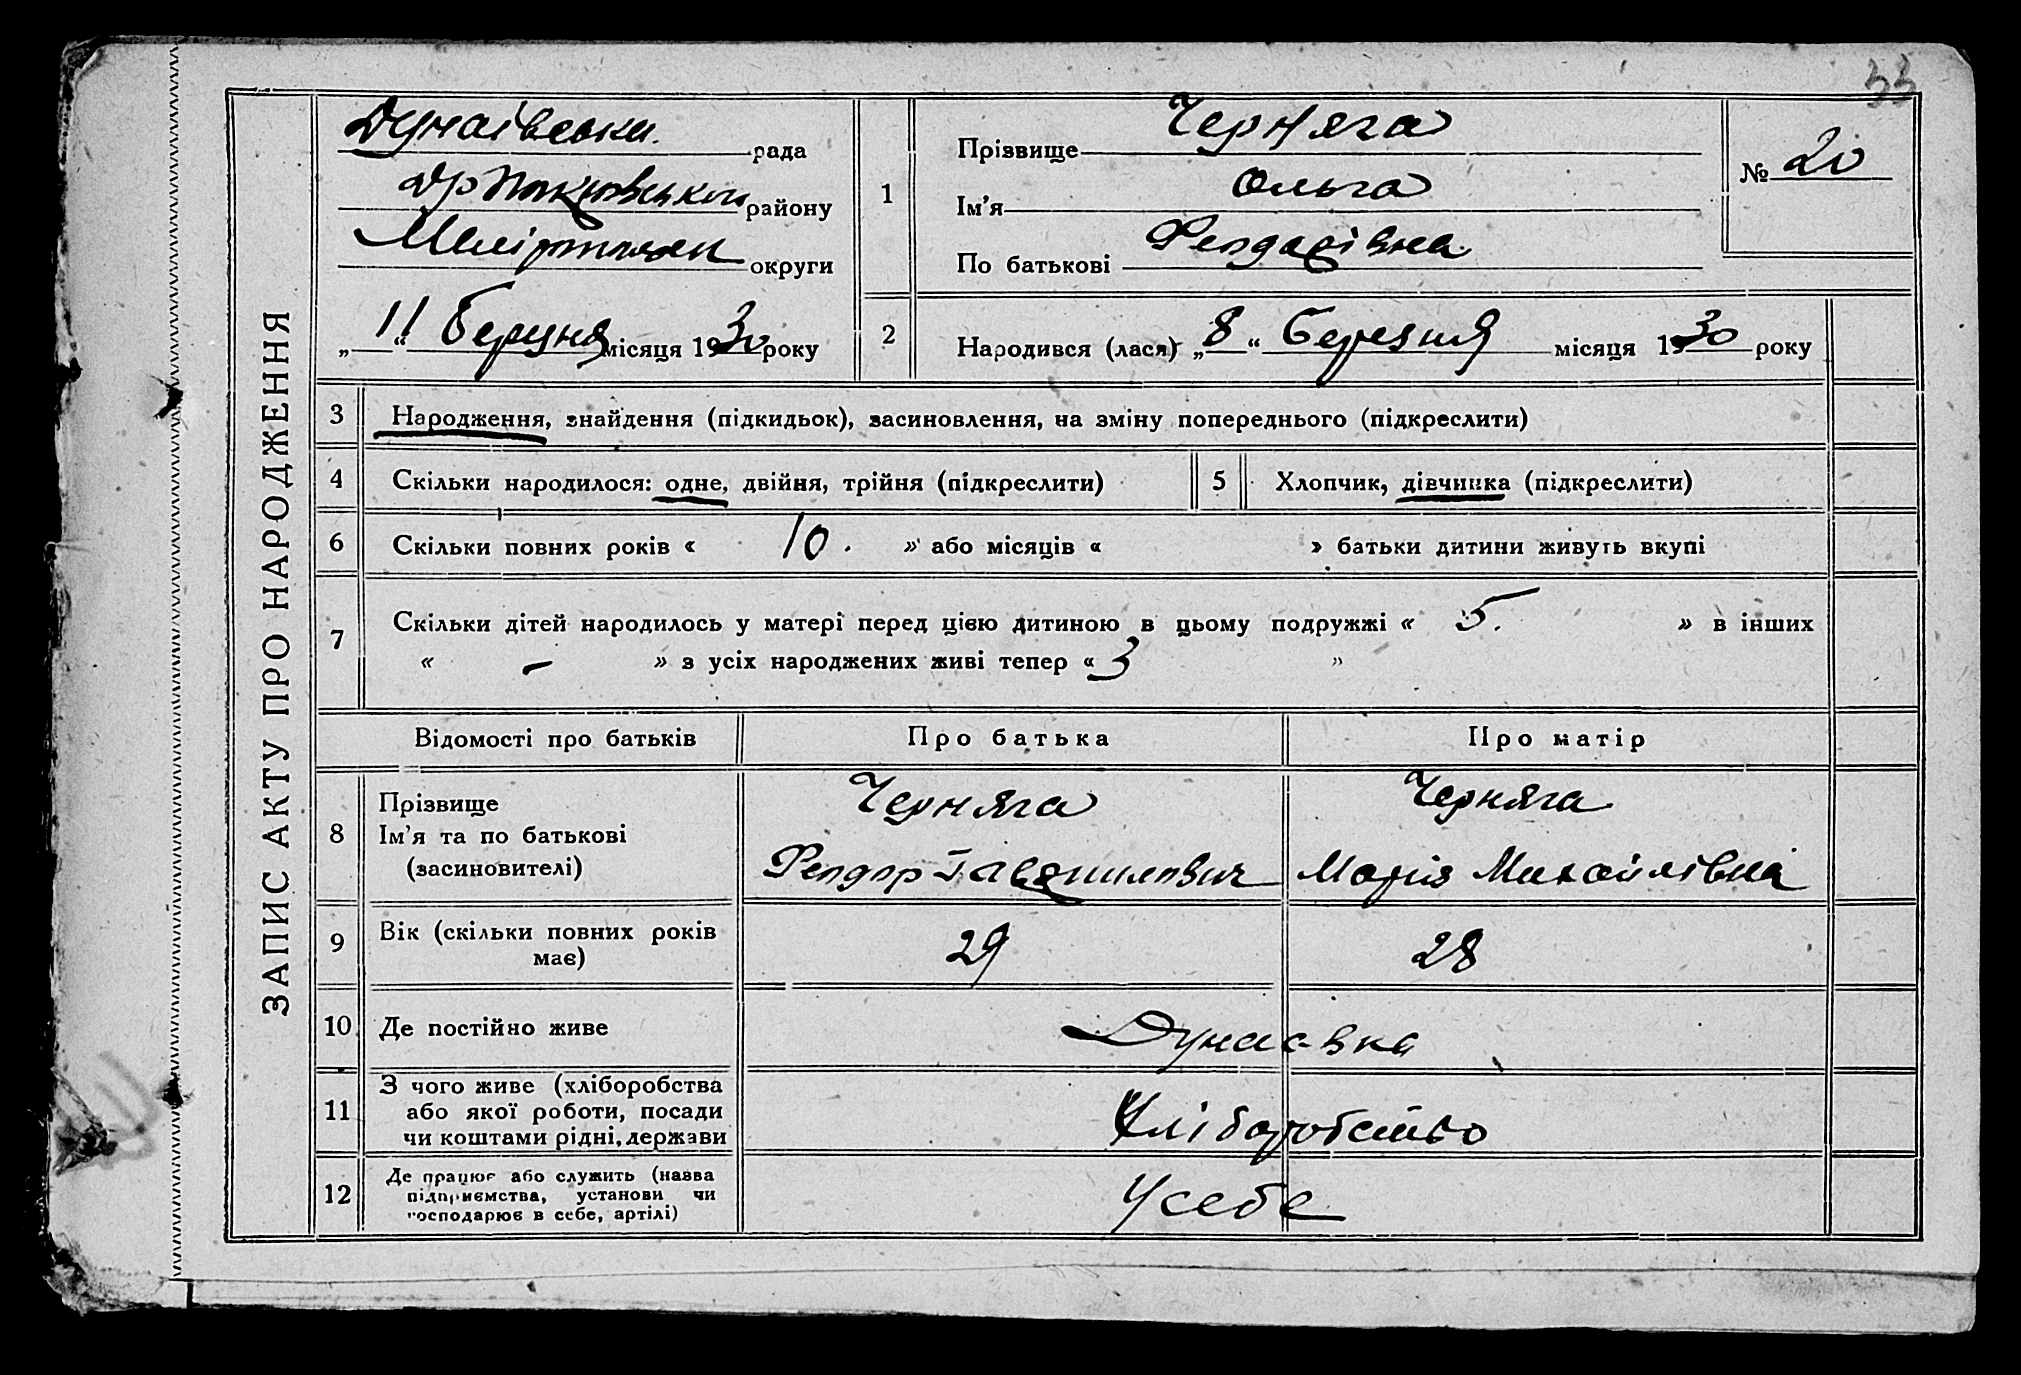 33
ЗАПИС АКТУ ПРО НАРОДЖЕННЯ
Дунаівська рада
району
округи
„11“ березня місяця 1930 року
1
Прізвище Черняга
Ім'я Ольга
По батькові Феодарівна
№ 20
2
Народився (лася) „8“ березня місяця 1930 року
3 Народження, знайдення (підкидьок), засиновлення, на зміну попереднього (підкреслити)
4 Скільки народилося: одне, двійня, трійня (підкреслити)
5 Хлопчик, дівчинка (підкреслити)
6 Скільки повних років « 10. » або місяців « » батьки дитини живуть вкупі
7 Скільки дітей народилось у матері перед цією дитиною в цьому подружжі « 5. » в інших
« – » з усіх народжених живі тепер « 3 »
Відомості про батьків Про батька Про матір
8 Прізвище
Ім'я та по батькові
(засиновителі)
Черняга
Феодор Гаврилович
Черняга
Марія Михайлівна
9 Вік (скільки повних років
має)
29 28
10 Де постійно живе Дунаєвка
11 З чого живе (хліборобства
або якої роботи, посади
чи коштами рідні, держави
Хліборобство
12 Де працює або служить (назва
підприємства, установи чи
господарює в себе, артілі)
У себе